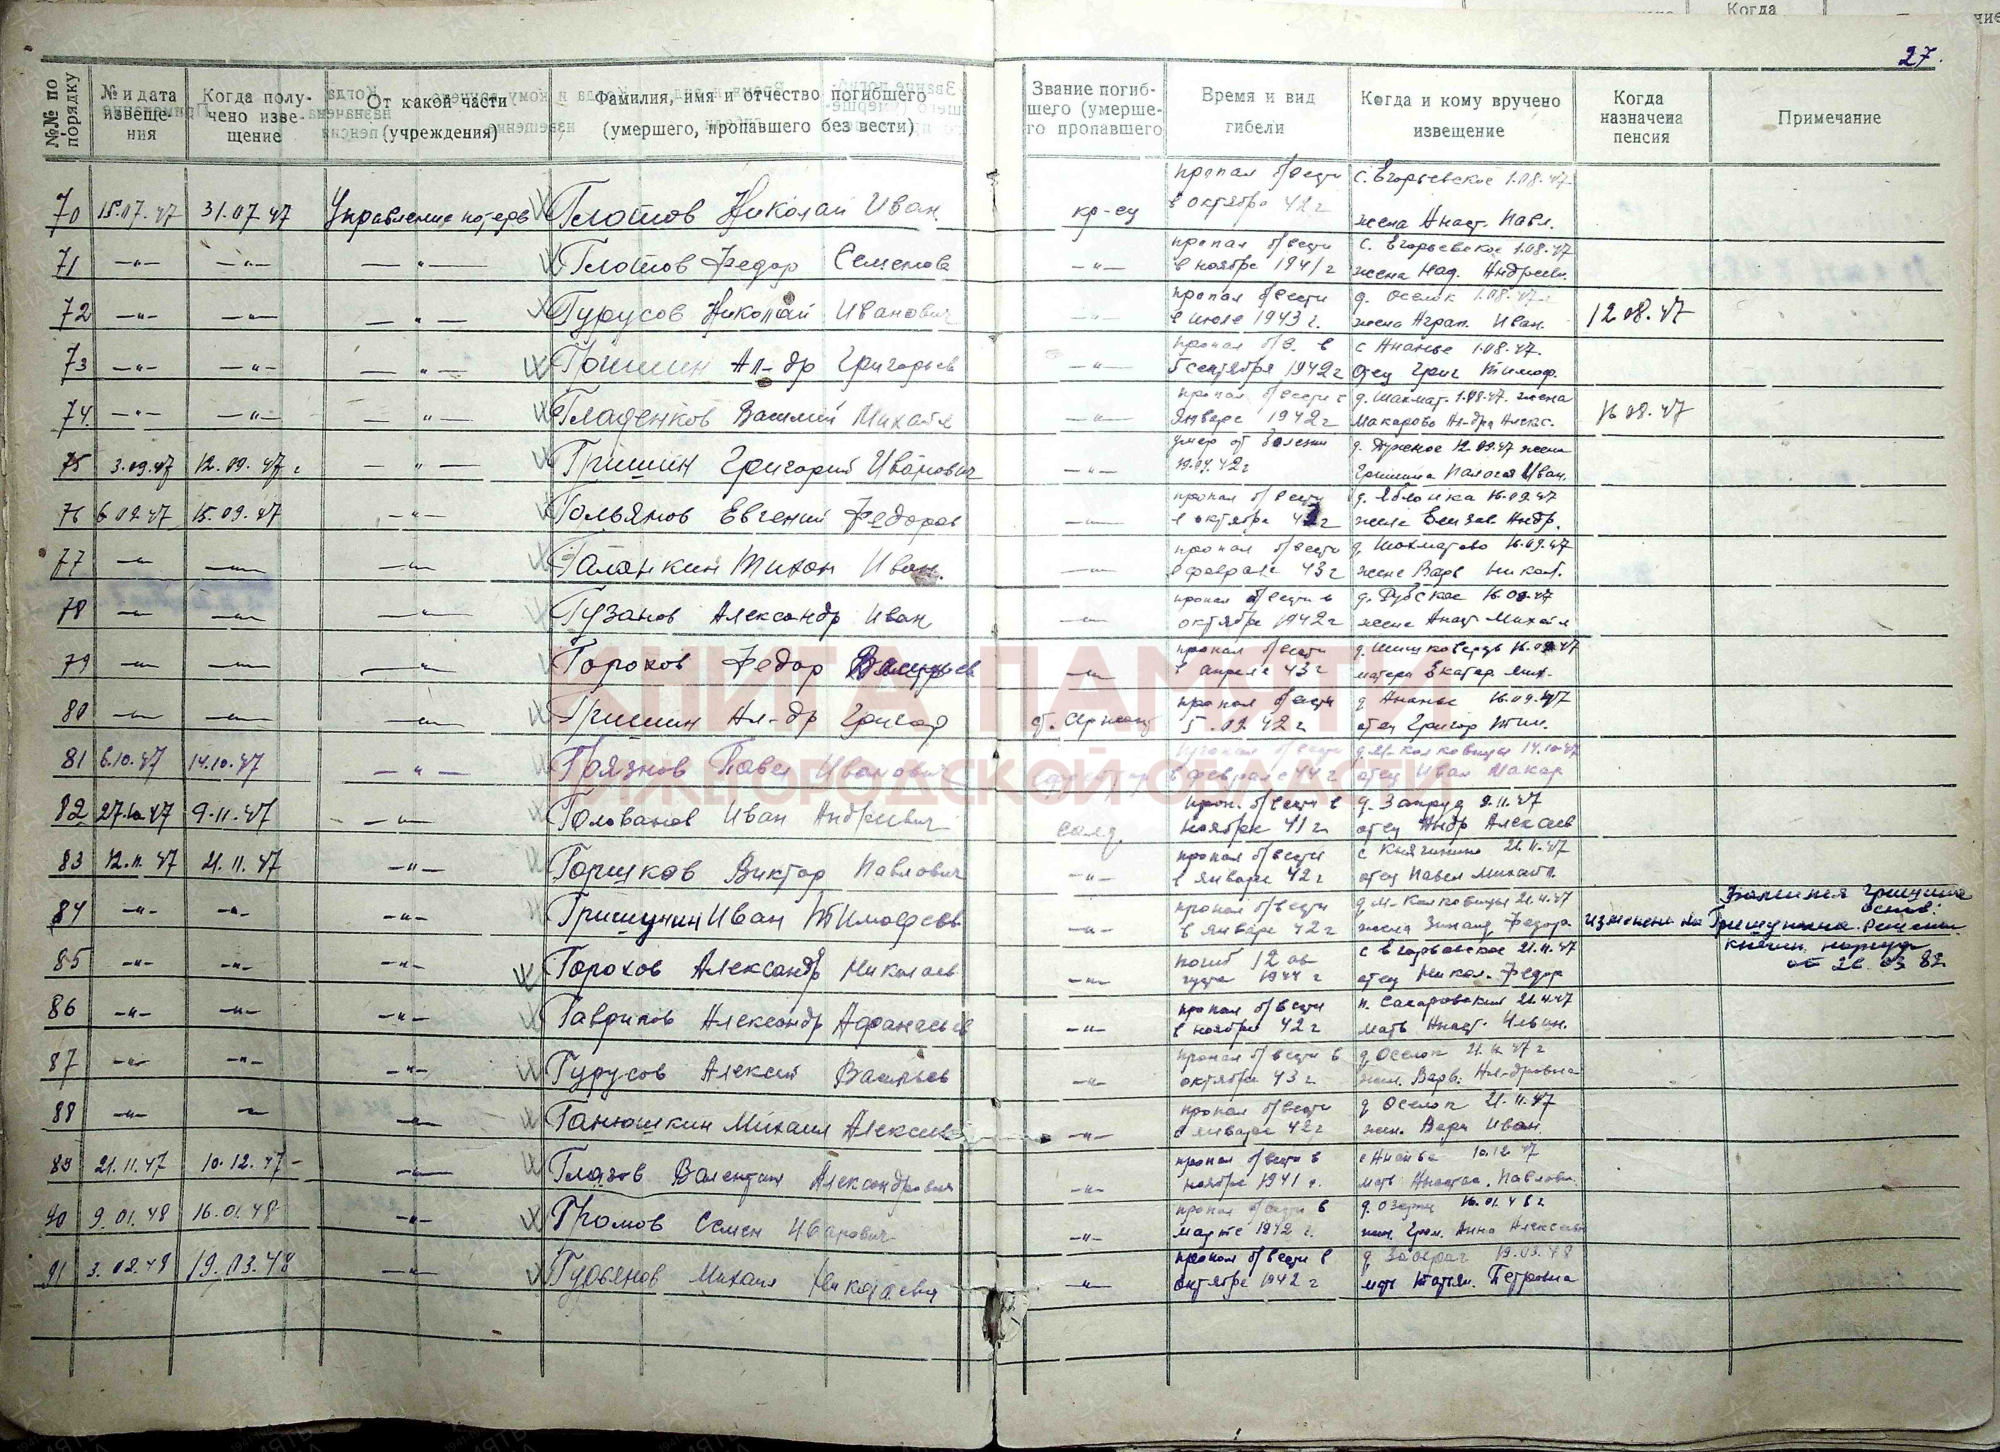 27.
№№ по порядку
№ и дата извещения
Когда получено извещение
От какой части (учреждения)
Фамилия, имя и отчество погибшего (умершего, пропавшего без вести)
Звание погибшего (умершего пропавшего
Время и вид гибели
Когда и кому вручено извещение
Когда назначена пенсия
Примечание
70 15.07.47 31.07.47 Управление потерь Глотов Николай Иван. кр-ец пропал б/вести с. Егорьевское 1.08.47
в октябре 42 г жена Анаст. Павл.
71 —"— —"— —"— Глотов Федор Семенов —"— пропал б/вести с. Егорьевское 1.08.47
в ноябре 1941 г жена Над. Андреевн.
72 —"— —"— —"— Гурусов Николай Иванович —"— пропал б/вести д. Оселок 1.08.47 г
в июле 1943 г. жена Аграп. Иван. 12.08.47
73 —"— —"— —"— Гришин Ал-др Григорьев —"— пропал б/в. в с Ананье 1.08.47.
5 сентября 1942 г отец Григ Тимоф.
74. —"— —"— —"— Гладенков Василий Михайл —"— пропал б/вести в д. Шахмат. 1.08.47. жена
январе 1942 г Макарова Ал-дра Алекс. 16.08.47
75 3.09.47 12.09.47 г —"— Гришин Григорий Иванович —"— умер от болезни 12.09.47 жена
19.04.42 г Гришина Пелагея Иван.
76 6.09.47 15.09.47 —"— Гольянов Евгений Федоров —"— пропал б/вести д. Яблонка 16.09.47
в октябре 42 г жена Елизав. Андр.
77 —"— —"— —"— Галянкин Тихон Иван. —"— пропал б/вести д. Шахматово 16.09.47
в феврале 43 г жена Варв Никол.
78 —"— —"— —"— Гузанов Александр Иван —"— пропал б/вести в д. Дубское 16.09.47
октябре 1942 г жена Анаст Михайл
79 —"— —"— —"— Горохов Федор —"— пропал б/вести д. Шишковердь 16.09.47
в апреле 43 г матери Екатер Мих.
80 —"— —"— —"— Гришин Ал-др Григор ст. сержант пропал б/вести д Ананье 16.09.47
5.09.42 г отец Григор Тим.
81 6.10.47 14.10.47 —"— Грязнов Павел Иванович пропал б/вести д. М-Колковицы 14.10.47
в феврале 44 г отец Иван Макар
82 27.10.47 9.11.47 —"— Голованов Иван Андреевич солд. проп. б/вести в д. Запруд 9.11.47
ноябре 41 г отец Андр Алексеев
83 12.11.47 21.11.47 —"— Горшков Виктор Павлович —"— пропал б/вести с Княгинино 21.11.47
в январе 42 г отец Павел Михайл.
84 —"— —"— —"— Гришунин Иван Тимофеев —"— пропал б/вести д. М-Колковицы 21.11.47
в январе 42 г жена Зинаид Федор изменено на Гришунина
основ.
от 26.03.82
85 —"— —"— —"— Горохов Александр Николаев —"— погиб 12 ав- с Егорьевское 21.11.47
густа 1944 г отец Никол. Федор
86 —"— —"— —"— Гаврилов Александр Афанасьев —"— пропал б/вести п. Сахаровский 21.11.47
в ноябре 42 г мать Анаст. Ильин.
87 —"— —"— —"— Гурусов Алексей Васильев —"— пропал б/вести в д. Оселок 21.11.47 г
октябре 43 г жен. Варв. Ал-дровна
88 —"— —"— —"— Ганюшкин Михаил Алексеев —"— пропал б/вести д Оселок 21.11.47
в январе 42 г жен. Вера Иван.
89 21.11.47 10.12.47 —"— Глазов Валентин Александрович —"— пропал б/вести в с Ананье 10.12.47
ноябре 1941 г. мать Анастас. Павловн.
90 9.01.48 16.01.48 —"— Громов Семен Иванович —"— пропал б/вести в д. Озерки 16.01.48 г
марте 1942 г. жен. Гром. Анна Алексеев
91 3.02.48 19.03.48 —"— Гурьянов Михаил Николаевич —"— пропал б/вести в 19.03.48
октябре 1942 г мать Татьян. Петровна
КНИГА ПАМЯТИ
НИЖЕГОРОДСКОЙ ОБЛАСТИ